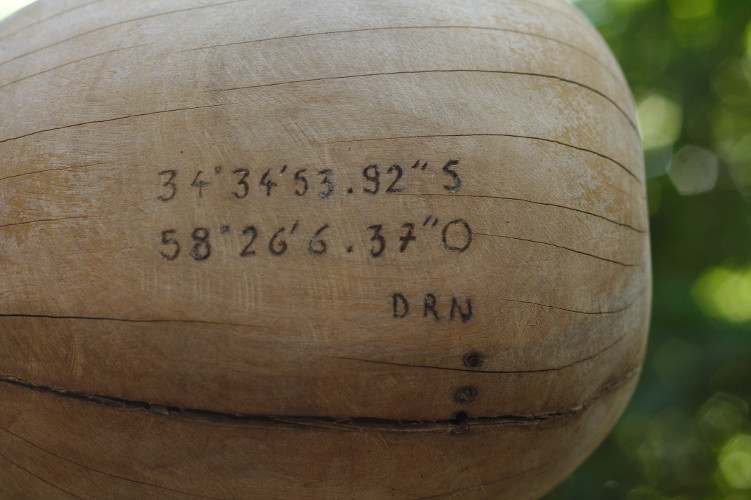 34°34'53.92"S
58°26'6.37"O
DRN